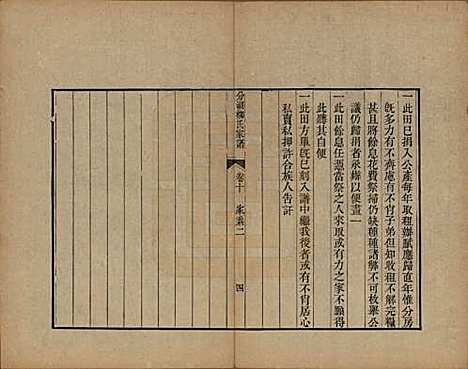 一此田已捐入公產每年取租辦賦應歸直年惟分房
旣多力有不齊慮有不肖子弟但知收租不解完糧
甚且將餘息花費祭掃仍缺種種諸弊不可枚舉公
議仍歸捐者承辦以便畫一
一此田餘息任憑當祭之人來取或有力之家不願得
此聽其自便
一此田方單旣已刻入譜中繼我後者或有不肖居心
私賣私押許合族人告訐
分湖柳氏家譜
卷十
家乘二
四